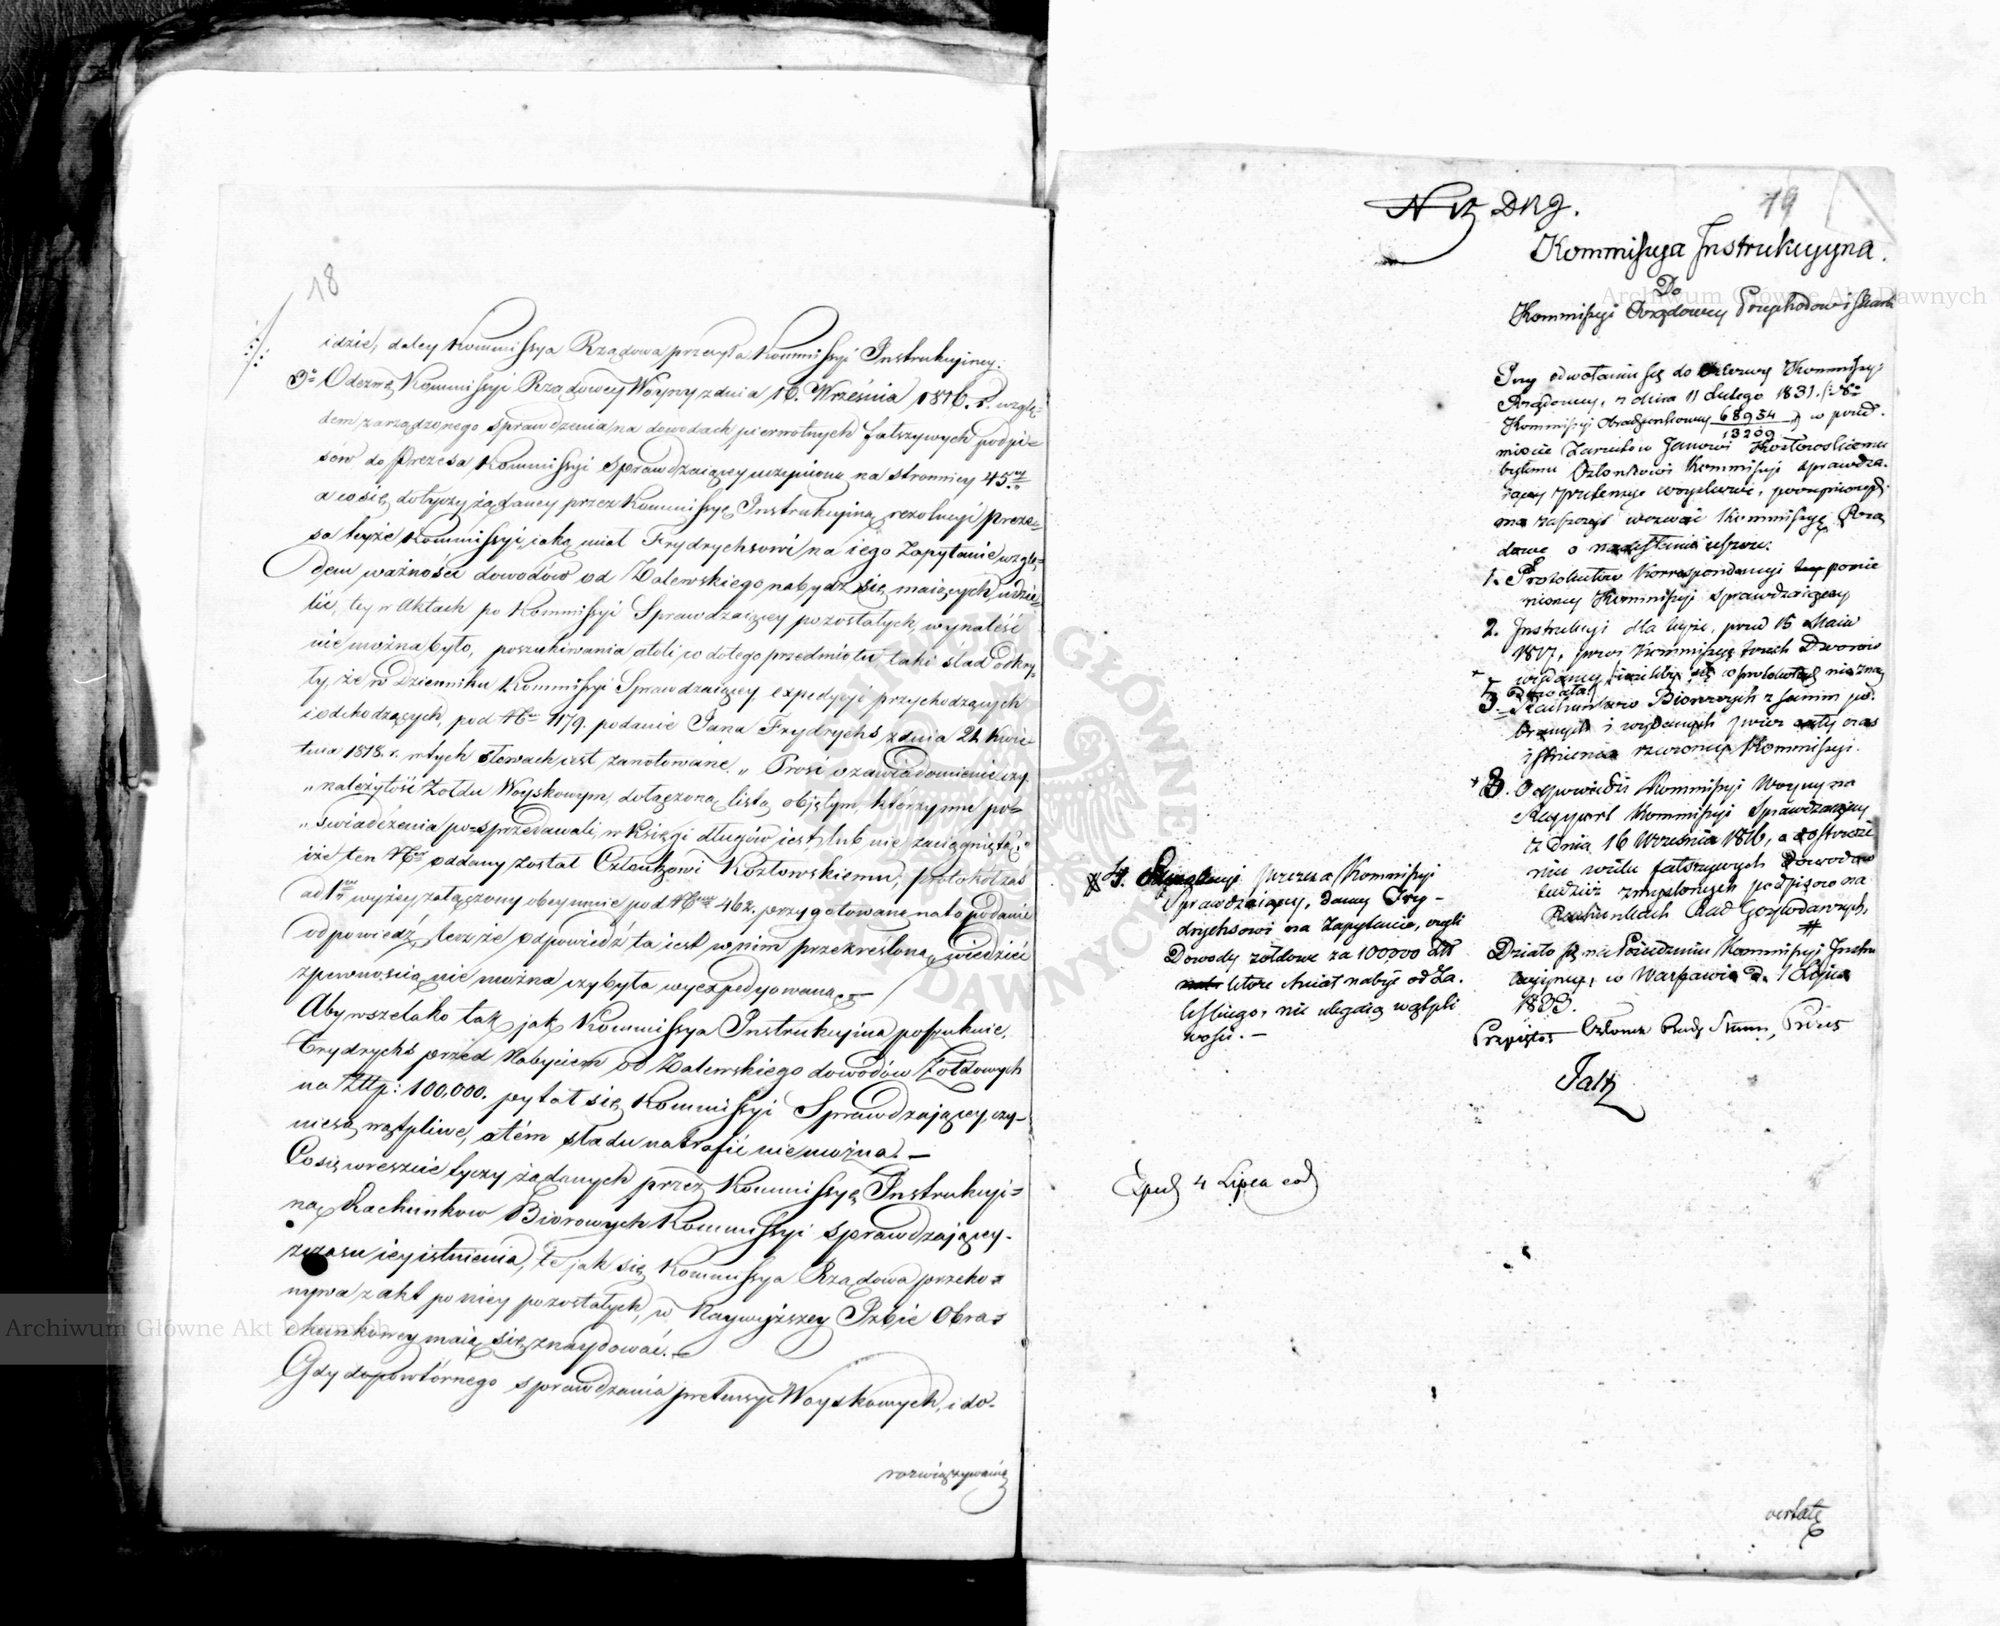 18
idzie, daley Kommissya Rządowa przesyła Kommissyi Instrukcyiney:
3º Odezwę Kommissyi Rządowey Woyny z dnia 16. Września 1816. r. wzglę=
dem zarządzonego sprawdzenia na dowodach pierwotnych fałszywych podpi=
sów do Prezesa Kommissyi Sprawdzaiącey uczynioną na stronnicy 45
a co się dotyczy żądaney przez Kommissyę Instrukcyiną rezolucyi Preze=
sa teyże Kommissyi, iaką miał Frydrychsowi na iego Zapytanie wzglę=
dem ważności dowodów od Zalewskiego nabydź się maiących, udzie=
lić, tey w Aktach po Kommissyi Sprawdzaiącey pozostałych, wynaleść
nie można było, poszukiwania atoli co do tego przedmiotu taki ślad odkry=
ły, że w Dzienniku Kommissyi Sprawdzaiącey expedycyi przychodzących
i odchodzących, pod Nº 1179. podanie Jana Frydrychs z dnia 21 Kwie=
tnia 1818. r. w tych słowach iest zanotowane „ Prosi o zawiadomienie czy
„ należytość Żołdu Woyskowym, dołączoną listą obiętym, którzy mu po=
„ świadczenia po sprzedawali, w Księgi długów iest lub nie zaciągnięta,"
iże ten Nr oddany został Członkowi Kozłowskiemu, protokół zaś
ad 1 wyżey załączony obeymuie pod Nrem 462. przygotowaną na to podanie
odpowiedź, lecz że odpowiedź ta iest w nim przekreśloną, wiedzieć
z pewnością nie można czy była wyexpedyowaną.—
Aby wszelako tak, jak Kommissya Instrukcyina poszukuie,
Frydrychs przed Nabyciem od Zalewskiego dowodów Żołdowych
na Złtp: 100,000. pytał się Kommissyi Sprawdzającey, czy
nie są wątpliwe, o tém śladu natrafić nie można.—
Co się wreszcie tyczy żądanych przez Kommissyę Instrukcyi=
ną Rachunkow Biorowych Kommissyi Sprawdzaiącey
z czasu iey istnienia, te jak się Kommissya Rządowa przeko=
nywa z akt po niey pozostałych, w Naywyższey Izbie Obra=
chunkowey maią się znaydować.—
Gdy do powtórnego sprawdzania pretensyi Woyskowych, i do=
rozwiązywania
19
N 12 DNg.
Kommissya Instrukcyyna.
Do
Kommissyi Rządowey Przychodow i Skarbu
Przy odwołaniu się do Odezwy Kommissyi
Rządowey, z dnia 11 Lutego 1831. /: Nº
Kommissyi Obrachunkowey 68934/13209 :/ w przed=
miocie Zarzutow Janowi Kozłowskiemu
byłemu Członkowi Kommissyi Sprawdza=
iącey pretensye woyskowe, poczynionych
ma zaszczyt wezwać Kommissyę Rzą
dową o nadesłanie ieszcze:
1. Protokułow Korrespondencyi ponie
nioney Kommissyi Sprawdzaiącey
2. Instrukcyi dla teyże, przed 15 Maia
1817, przez Kommissyę trzech Dworow
wydaney, ieżeliby się w protokołach nie zna
3. Rachunkow Biorowych z summ po=
branych i wydanych przez cały czas
istnienia rzeczoney Kommissyi.
+ 3. Odpowiedzi Kommissyi Woyny na
Rapport Kommissyi Sprawdzaiącey
z dnia 16 Września 1816, a dostrzeże
niu wielu fałszywych Dowodow
tudzież zmyślonych podpisow na
Rachunkach Rad Gospodarczych,
#
Działo się na Posiedzeniu Kommissyi Instru
kcyiney, w Warszawie d. 1 Lipca
1833.
Członek Rady Stanu, Prezes
Faltz
# 4. Prezesa Kommissyi
Sprawdzaiącey, daney Fry=
drychsowi na Zapytanie, czyli
Dowody żołdowe za 100000 Złt
które miał nabyć od Za=
lewskiego, nie ulegaią wątpli
wości.—
Exped 4 Lipca eod
vertatę
Archiwum Główne Akt Dawnych
Archiwum Główne Akt Dawnych
ARCHIWUM GŁÓWNE AKT DAWNYCH